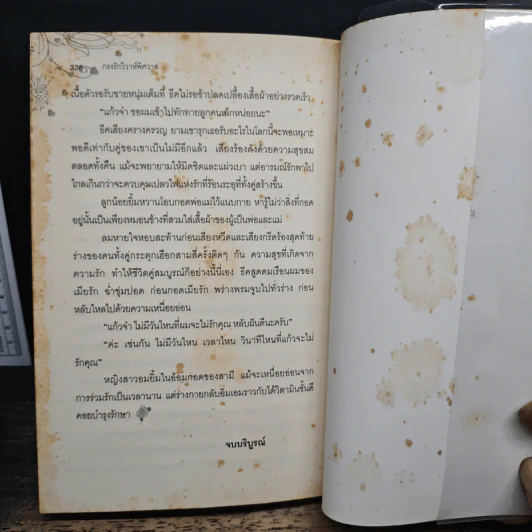 336 กรงรักวิวาห์พิศวาส
เนื้อตัวรอรับชายหนุ่มเต็มที่ ธีคไม่รอช้าปลดเปลื้องเสื้อผ้าอย่างรวดเร็ว
“แก้วจ๋า ขอผมเข้าไปทักทายลูกคนเล็กหน่อยนะ”
ธีคเสียงครางครวญ ยามเขารุกเธอรับอะไรในโลกนี้จะพอเหมาะ
พอดีเท่ากับคู่ของเขาเป็นไม่มีอีกแล้ว เสียงร้องดังด้วยความสุขสม
ตลอดทั้งคืน แม้จะพยายามให้มิดชิดและแผ่วเบา แต่อารมณ์รักพาไป
ไกลเกินกว่าจะควบคุมเปลวไฟแห่งรักที่ร้อนระอุที่ทั้งคู่สร้างขึ้น
ลูกน้อยยิ้มหวานโอบกอดพ่อแม่ไว้แนบกาย หารู้ไม่ว่าสิ่งที่กอด
อยู่นั้นเป็นเพียงหมอนข้างที่สวมใส่เสื้อผ้าของผู้เป็นพ่อและแม่
ลมหายใจหอบสะท้านก่อนเสียงหวีดและเสียงกรีดร้องสุดท้าย
ร่างของคนทั้งคู่กระตุกเฮือกสามสี่ครั้งติดๆ กัน ความสุขที่เกิดจาก
ความรัก ทำให้ชีวิตคู่สมบูรณ์ก็อย่างนี้นี่เอง ธีคสูดดมเรือนผมของ
เมียรัก ฉ่ำชุ่มปอด ก่อนกอดเมียรัก พร่างพรมจูบไปทั่วร่าง ก่อน
หลับใหลไปด้วยความเหนื่อยอ่อน
“แก้วจ๋า ไม่มีวันไหนที่ผมจะไม่รักคุณ หลับฝันดีนะครับ”
“ค่ะ เช่นกัน ไม่มีวันไหน เวลาไหน วินาทีไหนที่แก้วจะไม่
รักคุณ”
หญิงสาวอมยิ้มในอ้อมกอดของสามี แม้จะเหนื่อยอ่อนจาก
การร่วมรักเป็นเวลานาน แต่ร่างกายกลับอิ่มเอมราวกับได้วิตามินชั้นดี
คอยบำรุงรักษา
จบบริบูรณ์